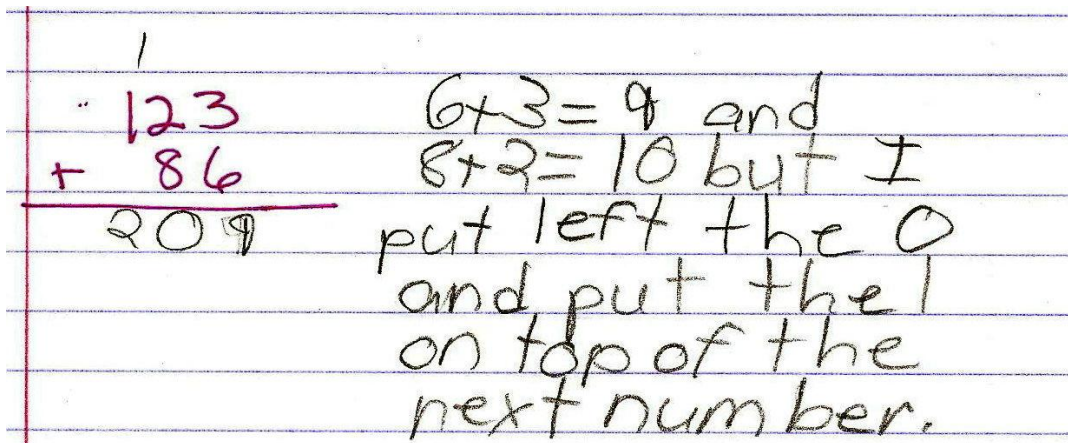 1
123
+ 86
209
6+3=9 and
8+2=10 but I
put left the 0
and put the 1
on top of the
next number.